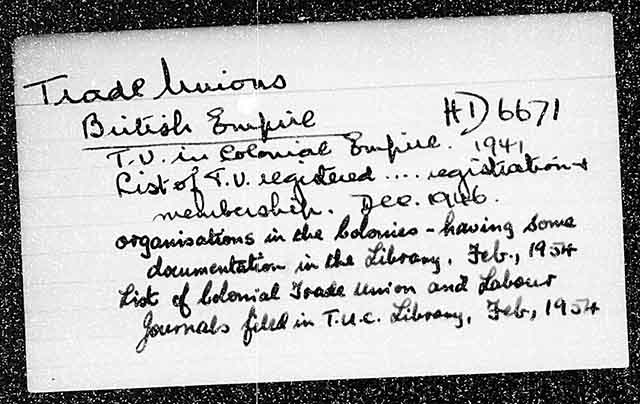 Trade Unions
British Empire HD6671
T.U. in Colonial Empire. 1941
List of T.U. registered .... registration +
membership. Dec. 1946.
organisations in the Colonies - having some
documentation in the Library, Feb., 1954
List of Colonial Trade Union and Labour
Journals filed in T.U.C. Library, Feb., 1954